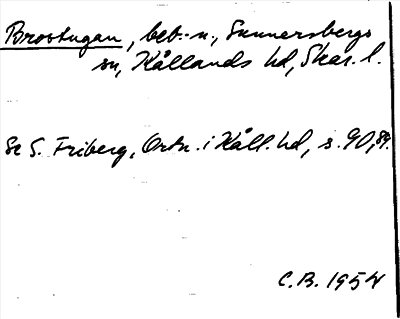 Brostugan, beb.-n., Sunnersbergs
sn, Kållands hd, Skar. l.
Se S. Friberg, Ortn. i Kåll. hd, s. 90, 89.
C.B. 1954